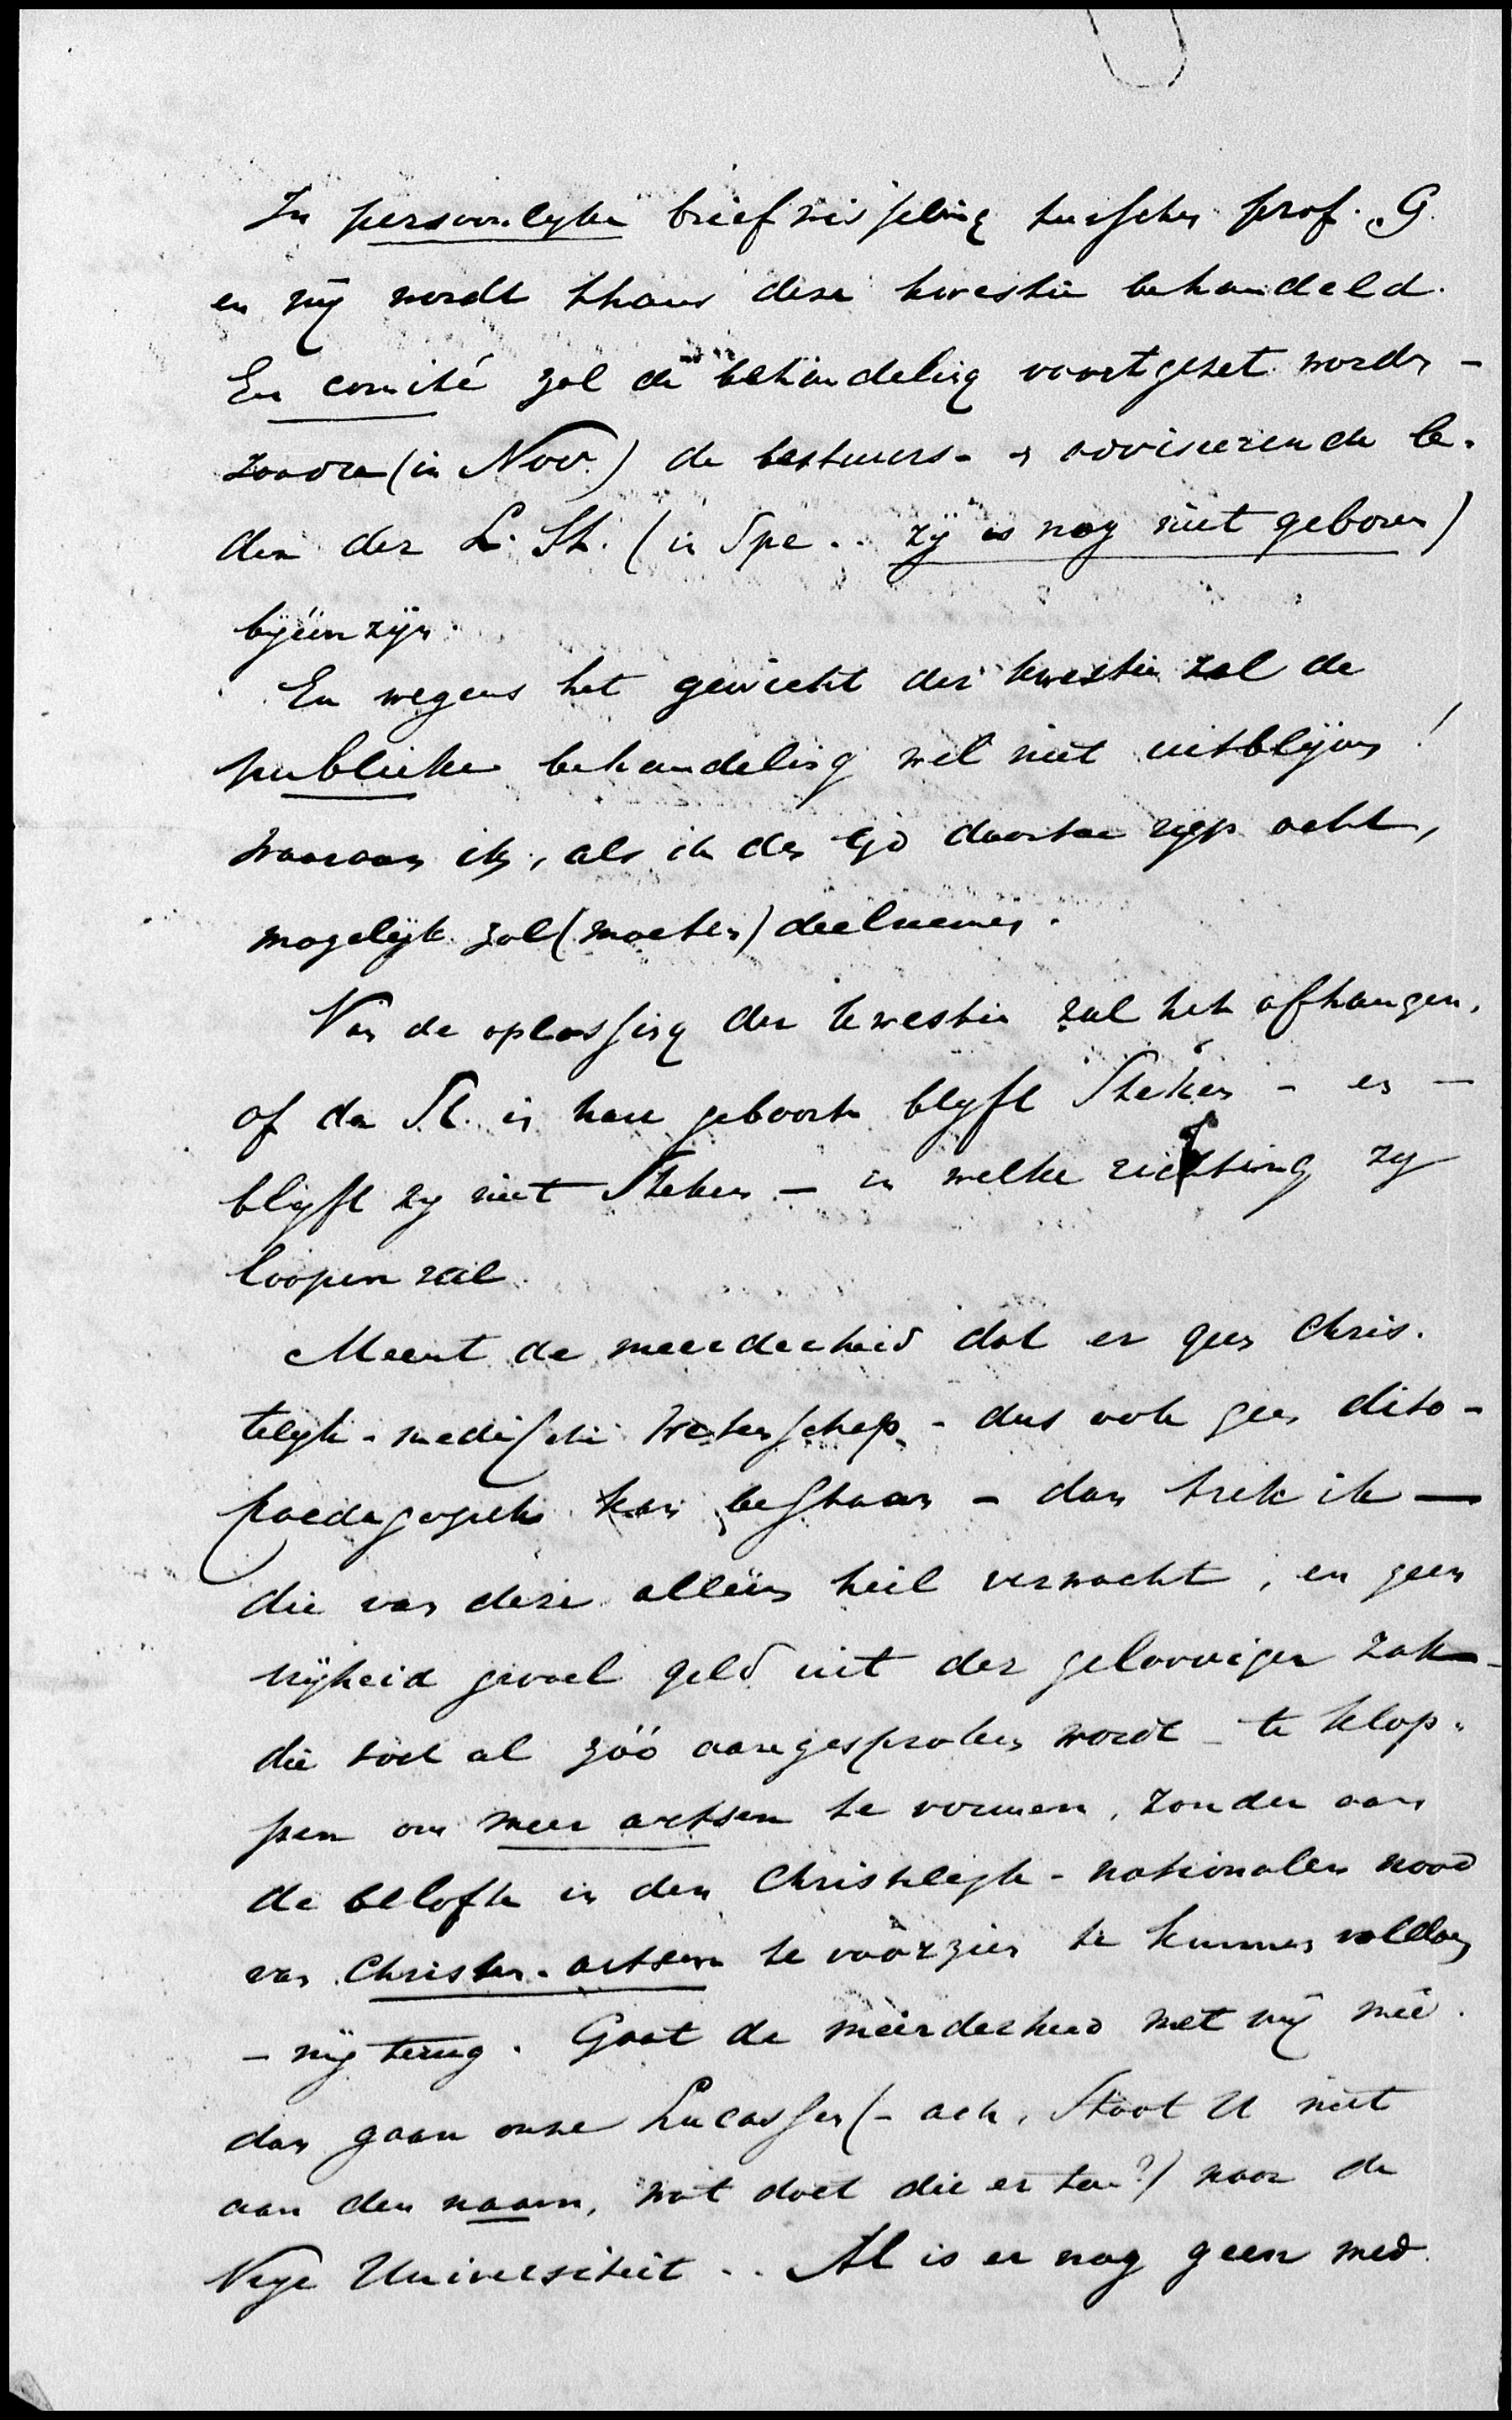 In persoonlyke briefwisseling tusschen prof. G.
en mij wordt thans deze kwestie behandeld.
En comité zal de behandeling voortgezet worden -
zoodra (in Nov.) de bestuurs- en adviseerende le-
den der L. St. (in Spe .. zij is nog niet geboren)
bijéén zijn.
En wegens het gewicht der kwestie zal de
publieke behandeling wel niet uitblijven!
Waaraan ik, als ik den tijd daartoe rijp acht,
mogelijk zal (moeten) deelnemen.
Van de oplossing der kwestie zal het afhangen,
of de St. in hare geboorte blyft steken - en -
blyft zy niet steken - in welke richting zy
loopen zal.
Meent de meerderheid dat er geen Chris-
telyk-medische Wetenschap - dus ook geen dito-
paedagogiek kan bestaan - dan trek ik —
die van deze alléén heil verwacht, en geen
vrijheid gevoel geld uit der geloovigen zak -
die toch al zóó aangesproken wordt - te klop-
pen om meer artsen te vormen, zonder aan
de belofte in den Christelyk-nationalen nood
van Christen-artsen te voorzien te kunnen voldoen
- mij terug. Gaat de meerderheid met mij meê
dan gaan onze Lucassen (- ach, Stoot U niet
aan den naam, wat doet die er toe?) naar de
Vrye Universiteit .. Al is er nog geen med.